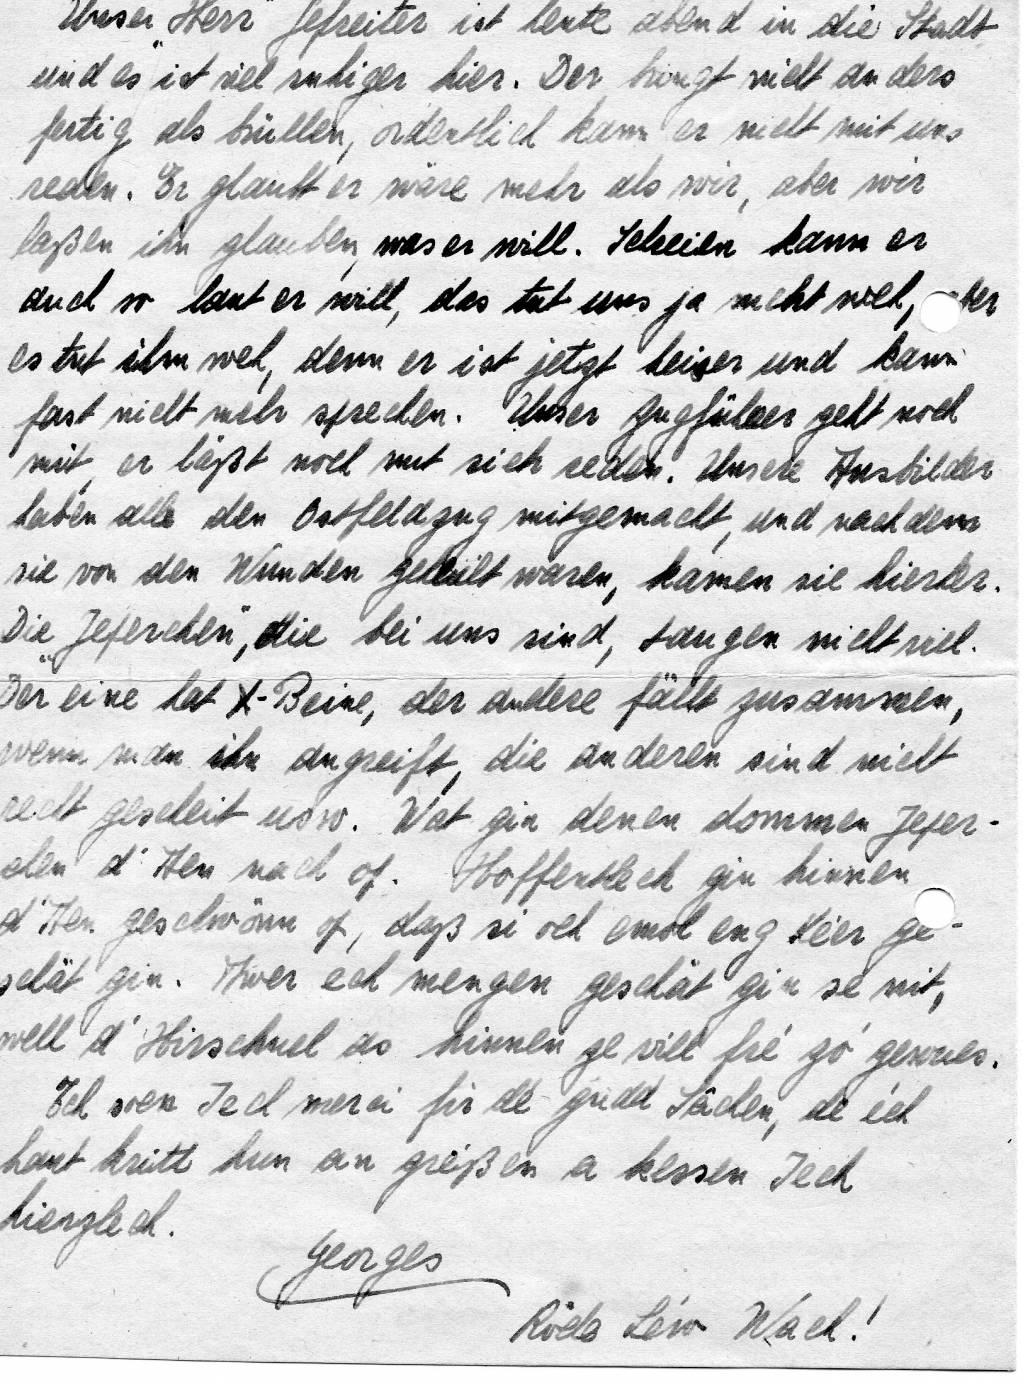 Unser „Herr" Gefreiter ist heute abend in die Stadt
und es ist viel ruhiger hier. Der bringt nicht anders
fertig als brüllen, ordentlich kann er nicht mit uns
reden. Er glaubt er wäre mehr als wir, aber wir
laßen ihn glauben, was er will. Schreien kann er
auch so laut er will, das tut uns ja nicht weh, aber
es tut ihm weh, denn er ist jetzt heiser und kann
fast nicht mehr sprechen. Unser Zugführer geht noch
mit, er läßt noch mit sich reden. Unsere Ausbilder
haben alle den Ostfeldzug mitgemacht, und nachdem
sie von den Wunden geheilt waren, kamen sie hierher.
Die „Jeferchen", die bei uns sind, taugen nicht viel.
Der eine hat X-Beine, der andere fällt zusammen,
wenn man ihn angreift, die anderen sind nicht
recht gescheit usw. Wat gin denen dommen Jefer-
chen d'Aen nach of. Hoffentlech gin hinnen
d'Aen geschwönn of, daß si och emol eng Kéer ge-
schät gin. Awer ech mengen geschät gin se nit,
well d'Hirschnel as hinnen ze vill fré zó gewues.
Ech soen Iech merci fir dé gudd Sâchen, dé éch
haut kritt hun an greißen a kessen Iech
hierzlech.
Georges
Röde Léiw Wäch!